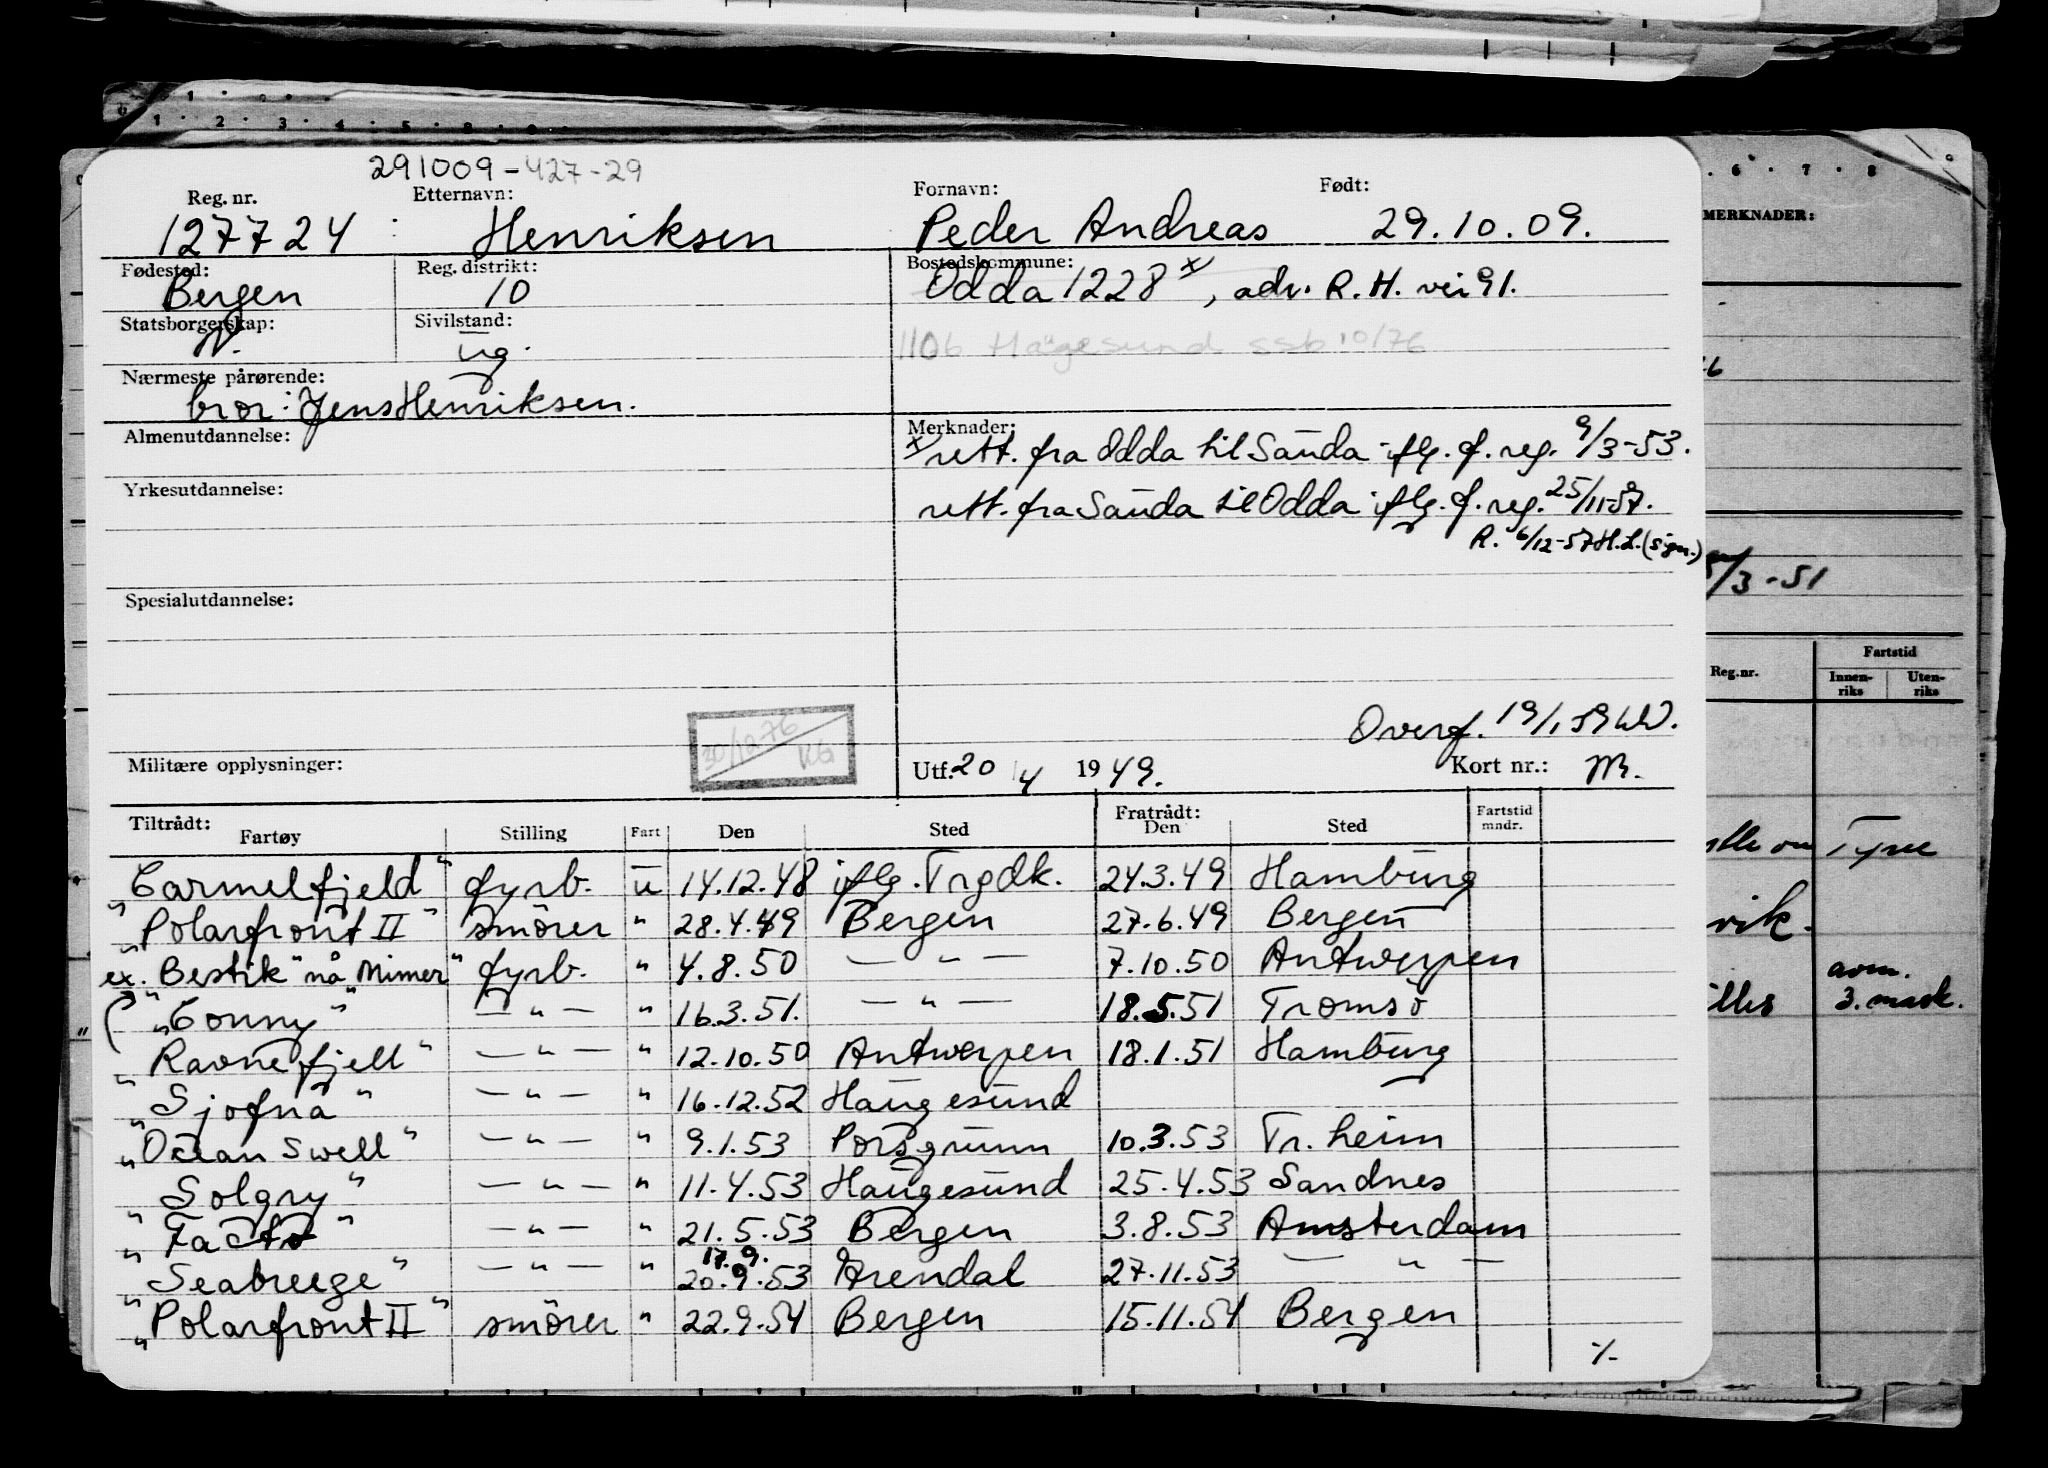 291009-427-29
Reg. nr. Etternavn: Fornavn: Født:
127724 Henriksen Peder Andreas 29.10.09.
Fødested: Reg. distrikt: Bostedskommune:
Bergen 10 Odda 1228 x, adr. R. H. vei 91.
Statsborgerskap: Sivilstand:
ug.
1106 Haugesund ssb 10/76
Nærmeste pårørende:
bror: Jens Henriksen.
Almenutdannelse: Merknader:
x rett. fra Odda til Sauda iflg. f. reg. 9/3-53.
Yrkesutdannelse:
rett. fra Sauda til Odda iflg. f. reg. 25/11-57.
R. 6/12-57 H.L. (sign.)
Spesialutdannelse:
Overf. 19/1 59
30/10-76
Militære opplysninger: Utf. 20/4 1949. Kort nr.:
Tiltrådt: Fratrådt:
Fartøy Stilling Fart Den Sted Den Sted Fartstid mndr.
"Carmelfjeld" fyrb. u 14.12.48 iflg. Trgdk. 24.3.49 Hamburg
"Polarfront II" smörer " 28.4.49 Bergen 27.6.49 Bergen
ex. "Bestik" nå "Mimer" fyrb. " 4.8.50 — " — 7.10.50 Antwerpen
"Conny" — " — " 16.3.51. — " — 18.5.51 Tromsö
"Ravnefjell" — " — " 12.10.50 Antwerpen 18.1.51 Hamburg
"Sjofna" — " — " 16.12.52 Haugesund
"Ocean Swell" — " — " 9.1.53 Porsgrunn 10.3.53 Tr.heim
"Solgry" — " — " 11.4.53 Haugesund 25.4.53 Sandnes
"Facto" — " — " 21.5.53 Bergen 3.8.53 Amsterdam
17.9.
"Seabreeze" — " — " 20.9.53 Arendal 27.11.53 — " —
"Polarfront II" smörer " 22.9.54 Bergen 15.11.54 Bergen
./.
6 · 7 · 8
MERKNADER:
/3-51
Reg.nr. Fartstid
Innenriks Utenriks
Tyne
vik.
avm.
3. mask.